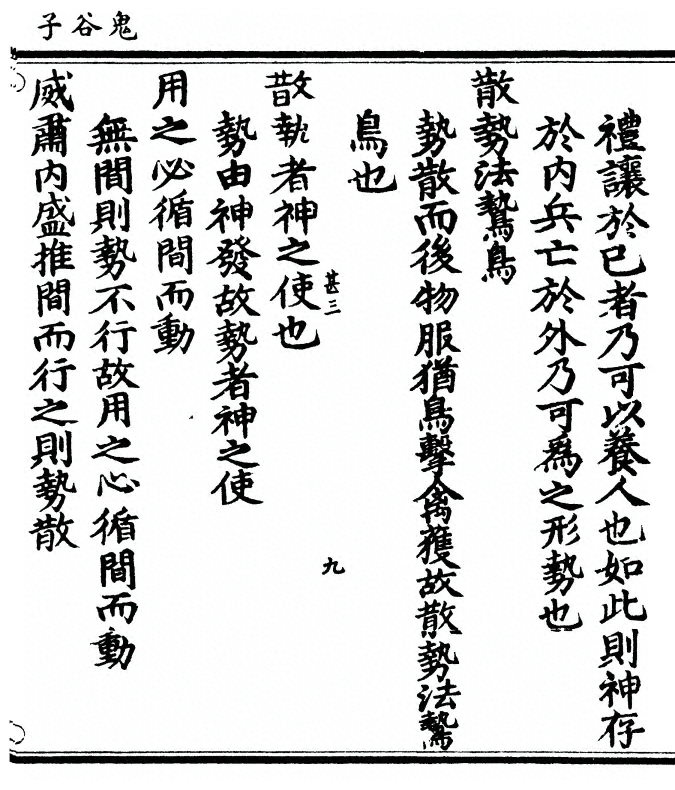 鬼谷子
禮讓於已者乃可以養人也如此則神存
於內兵亡於外乃可爲之形勢也
散勢法鷙鳥
勢散而後物服猶鳥擊禽獲故散勢法鷙
鳥也
甚三
九
散埶者神之使也
勢由神發故勢者神之使
用之必循間而動
無間則勢不行故用之心循間而動
威肅內盛推間而行之則勢散